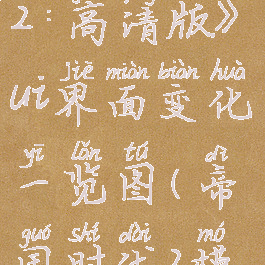 2：高清版》
jiè miàn biàn huà
ui界面变化
yī lǎn tú dì
一览图(帝
guó shí dài mó
国时代)模